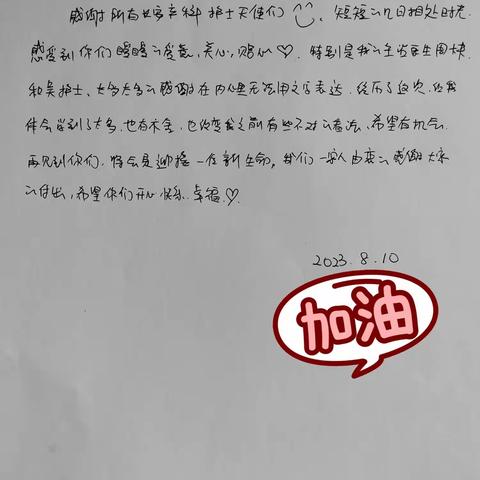 感谢所有妇产科护士天使们，短短的几日相处时光.
感受到你们暖暖的度意，关心，贴心♡. 特别是我的主治医生周姨
和吴护士、太多太多的感谢在内心里无法用文字表达. 经历了这次. 让我
体会学到了太多. 也有不舍. 也改变我之前有些不对的看法、希望有机会.
再见到你们. 将会是迎接一个新生命，我们一家人由衷的感谢大家
的付出，希望你们开心快乐. 幸福.♡
2023.8.10
加油